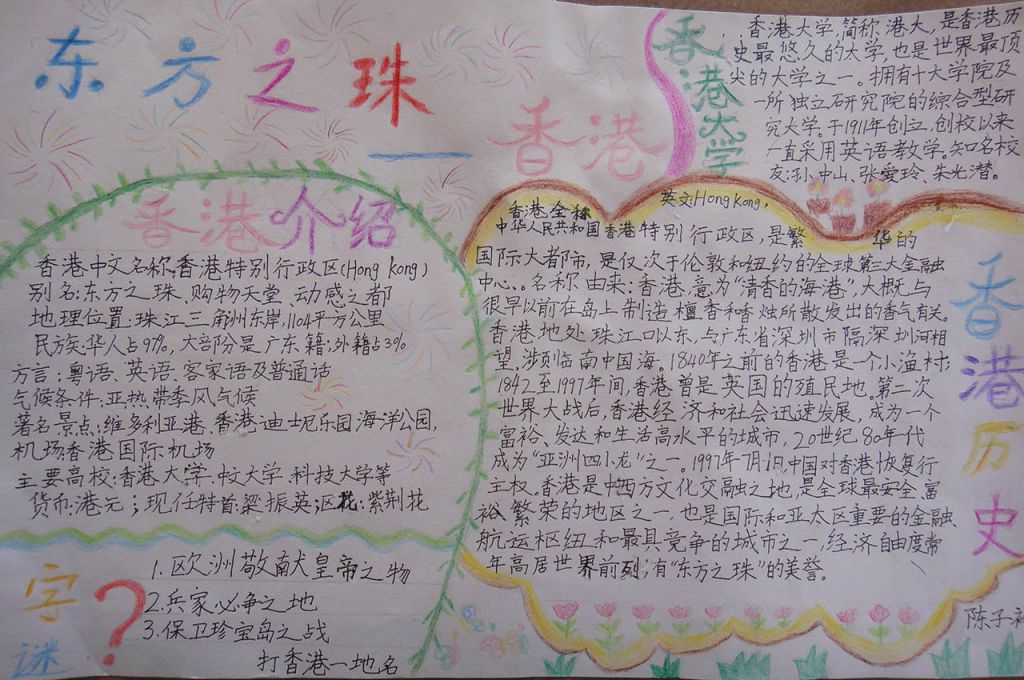 东方之珠
香港
香港大学
香港大学,简称港大,是香港历
史最悠久的大学,也是世界最顶
尖的大学之一。拥有十大学院及
一所独立研究院的综合型研
究大学。于1911年创立,创校以来
一直采用英语教学。知名校
友:孙中山、张爱玲、朱光潜。
香港介绍
香港中文名称:香港特别行政区(Hong kong)
别名:东方之珠、购物天堂、动感之都
地理位置:珠江三角洲东岸,1104平方公里
民族:华人占97%,大部分是广东籍;外籍占3%
方言:粤语、英语、客家语及普通话
气候条件:亚热带季风气候
著名景点:维多利亚港、香港迪士尼乐园、海洋公园,
机场:香港国际机场
主要高校:香港大学、中文大学、科技大学等
货币:港元;现任特首:梁振英;区花:紫荆花
字谜?
1.欧洲敬献皇帝之物
2.兵家必争之地
3.保卫珍宝岛之战
打香港一地名
香港历史
香港全称 英文:Hong Kong,
中华人民共和国香港特别行政区,是繁华的
国际大都市,是仅次于伦敦和纽约的全球第三大金融
中心、。名称由来:香港,意为“清香的海港”,大概与
很早以前在岛上制造檀香和香烛所散发出的香气有关。
香港地处珠江口以东,与广东省深圳市隔深圳河相
望,濒临南中国海。1840年之前的香港是一个小渔村;
1842至1997年间,香港曾是英国的殖民地。第二次
世界大战后,香港经济和社会迅速发展,成为一个
富裕、发达和生活高水平的城市,20世纪80年代
成为“亚洲四小龙”之一。1997年7月1日,中国对香港恢复行
主权。香港是中西方文化交融之地,是全球最安全、富
裕、繁荣的地区之一,也是国际和亚太区重要的金融、
航运枢纽和最具竞争的城市之一,经济自由度常
年高居世界前列,有“东方之珠”的美誉。
陈子